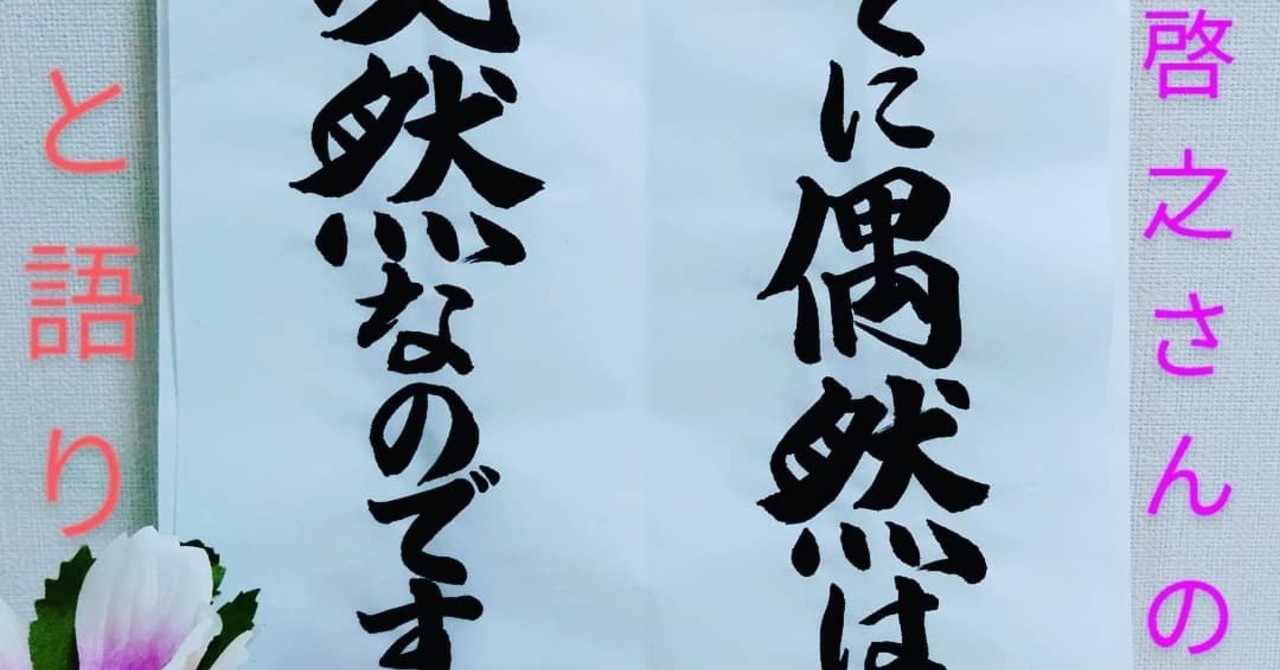 啓之さんの
に偶然は
然なのです
と語り